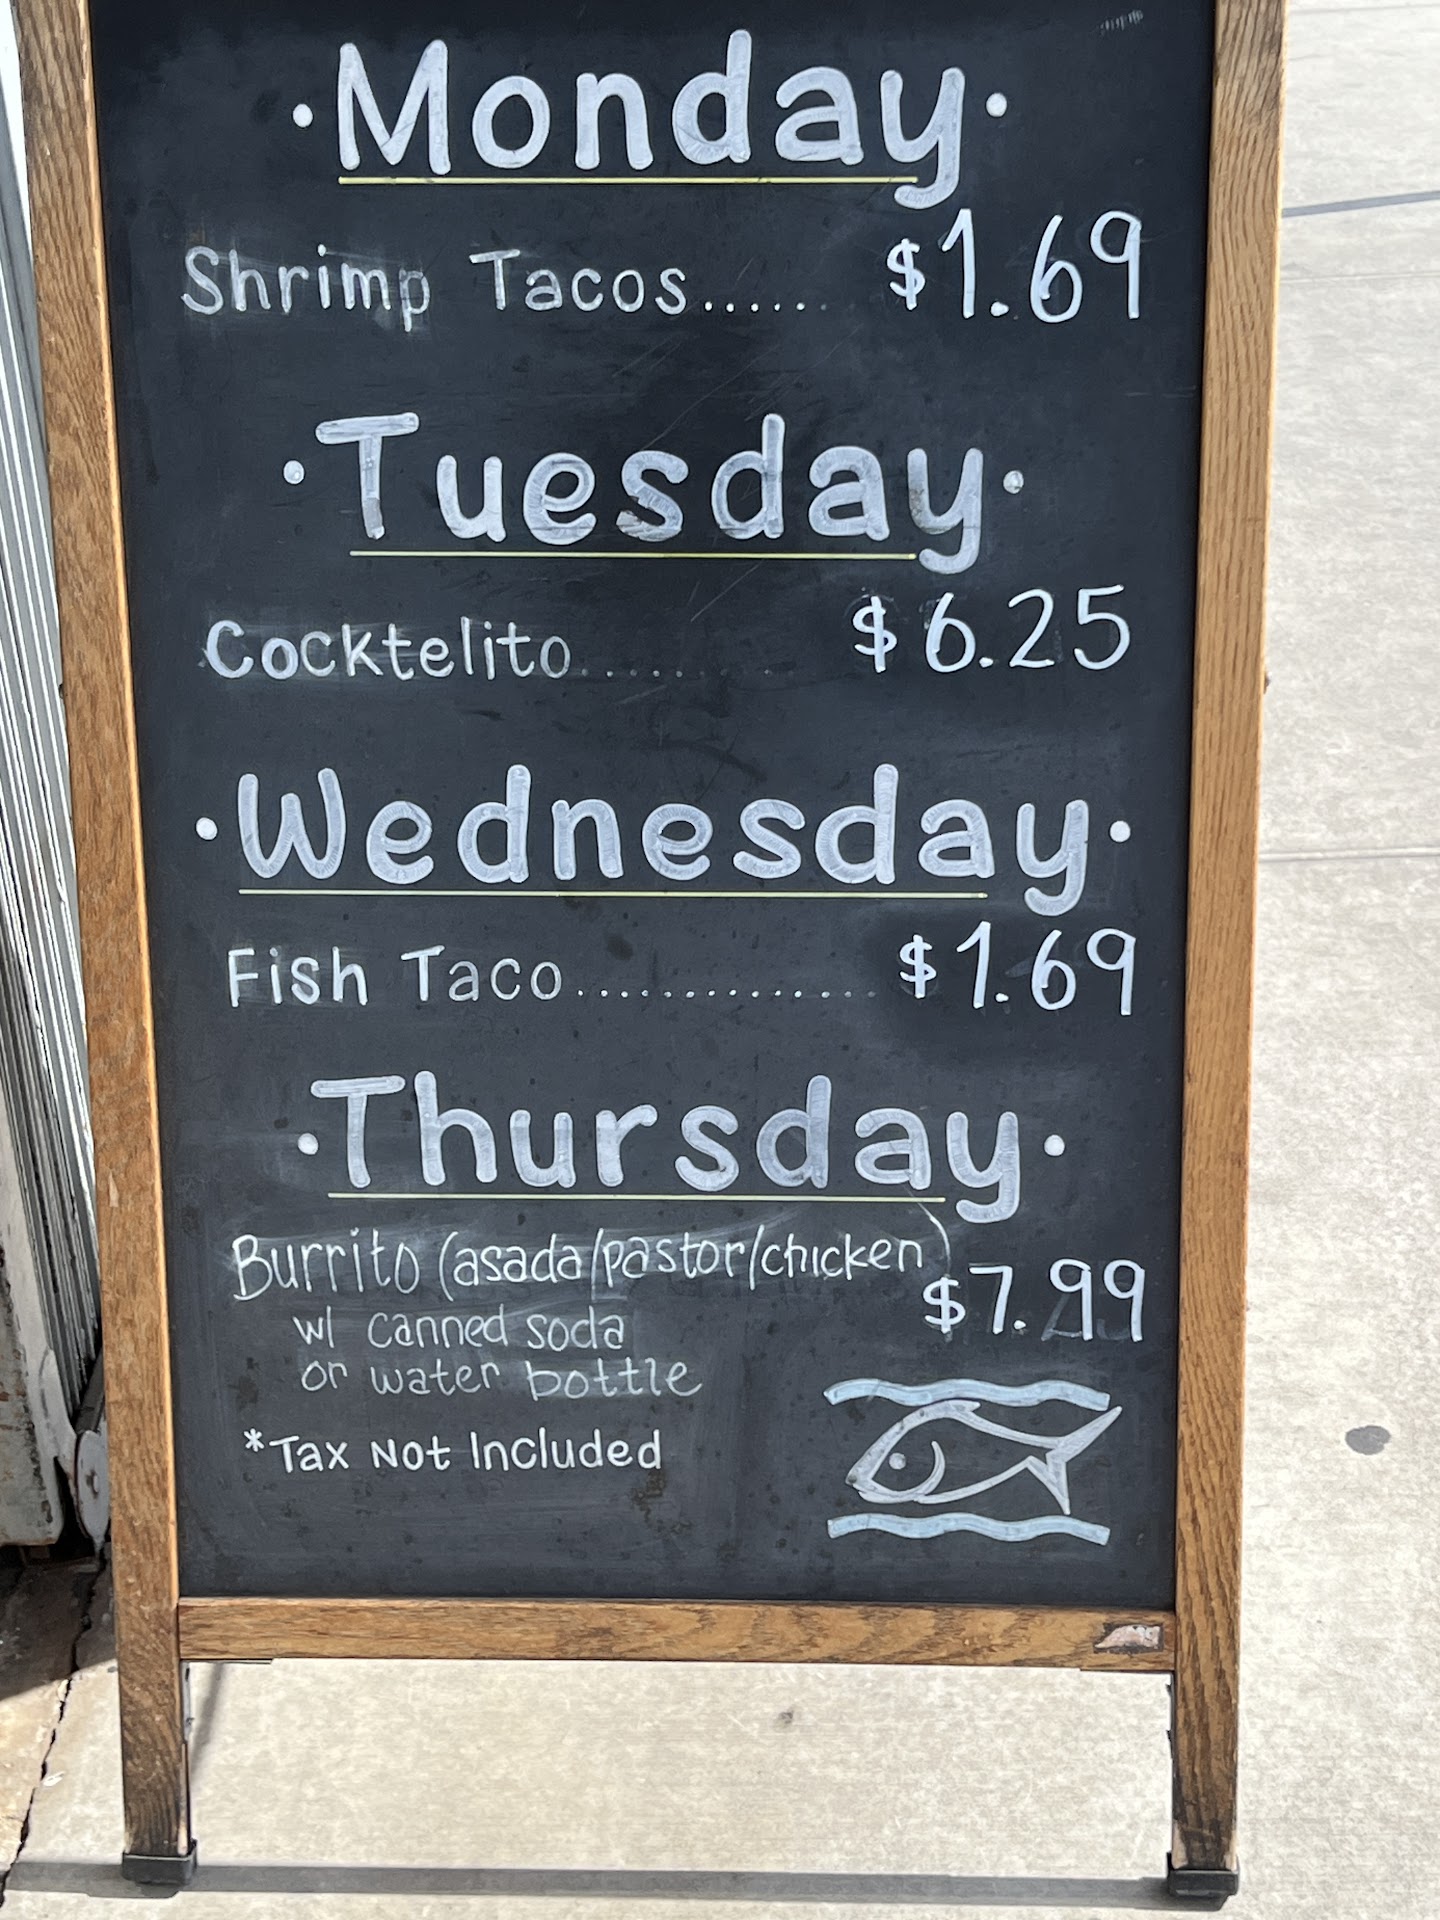 ·Monday·
Shrimp Tacos...... $1.69
·Tuesday·
Cocktelito.......... $6.25
·Wednesday·
Fish Taco............... $1.69
·Thursday·
Burrito (asada/pastor/chicken) $7.99
w/ canned soda
or water bottle
*Tax Not Included